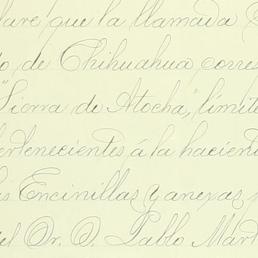 lare que la llamada
o de Chihuahua corres
"Sierra de Atocha," limite
ertenecientes á la haciend
as Encinillas y anexas
el Sr. D. Pablo Mart